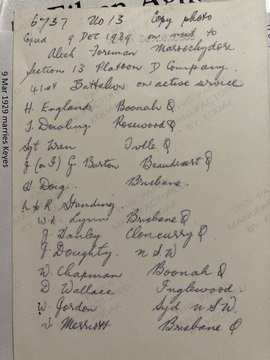 6737 No 13 Copy photo
9 DEC 1989 on went to
Aleck Foreman Maroochydore
Section 13 Platoon D Company.
41st Battalion on active service
H England Boonah Q
T Dowling Rosewood Q
Sgt Wren Q
J (or I) G Burton Beaudesert Q
Doig. Brisbane.
L to R Standing.
W. Lynn Brisbane Q
J Hanley Cloncurry Q
J Doughty. N S W
W Chapman Boonah Q
D Wallace Inglewood.
W Jordon Syd N S W.
V Merrott Brisbane Q
9 Mar 1929 marries Keyes